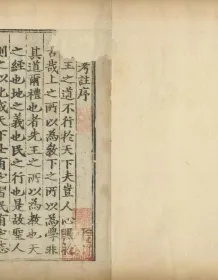 考註序
王之道不行於天下夫豈人心
古哉上之所以為教下之所以為學非
其道爾禮也者先王之所以為教也天
之經也地之義也民之行也是故聖人
則之以成天下